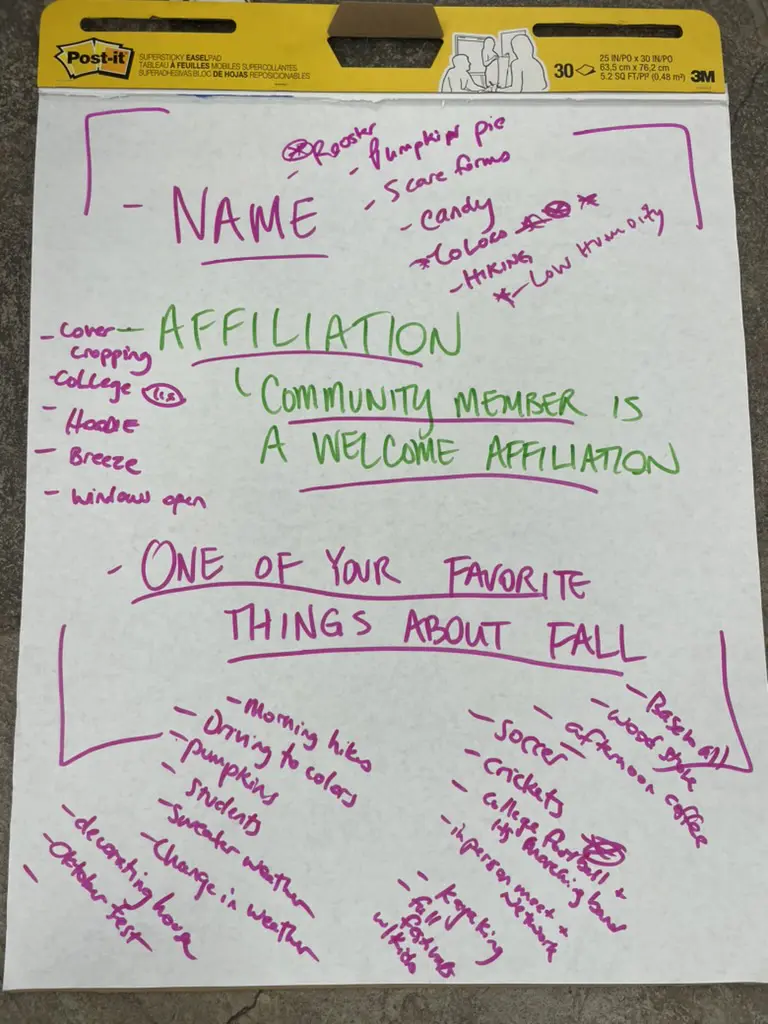 Post-it
SUPERSTICKY EASELPAD
TABLEAU À FEUILLES MOBILES SUPERCOLLANTES
SUPERADHESIVAS BLOC DE HOJAS REPOSICIONABLES
30
25 IN/PO x 30 IN/PO
63,5 cm x 76,2 cm
5.2 SQ FT/PI² (0,48 m²)
3M
Rooster
- Pumpkin pie
- Scare farms
- Candy
- Colors
- HIKING
- LOW HUMIDITY
- NAME
- AFFILIATION
COMMUNITY MEMBER IS
A WELCOME AFFILIATION
- Cover
cropping
- College
- Hoodie
- Breeze
- Windows open
- ONE OF YOUR FAVORITE
THINGS ABOUT FALL
- Morning hikes
- Driving to colors
- pumpkins
- students
- Sweater weather
- Change in weather
- decorating house
- Oktober Fest
- Baseball
- wood
- afternoon coffee
- Soccer
- Crickets
- College football +
its marching band
- in person meet +
network
- Kayaking
- Fall
festivals
w/ kids